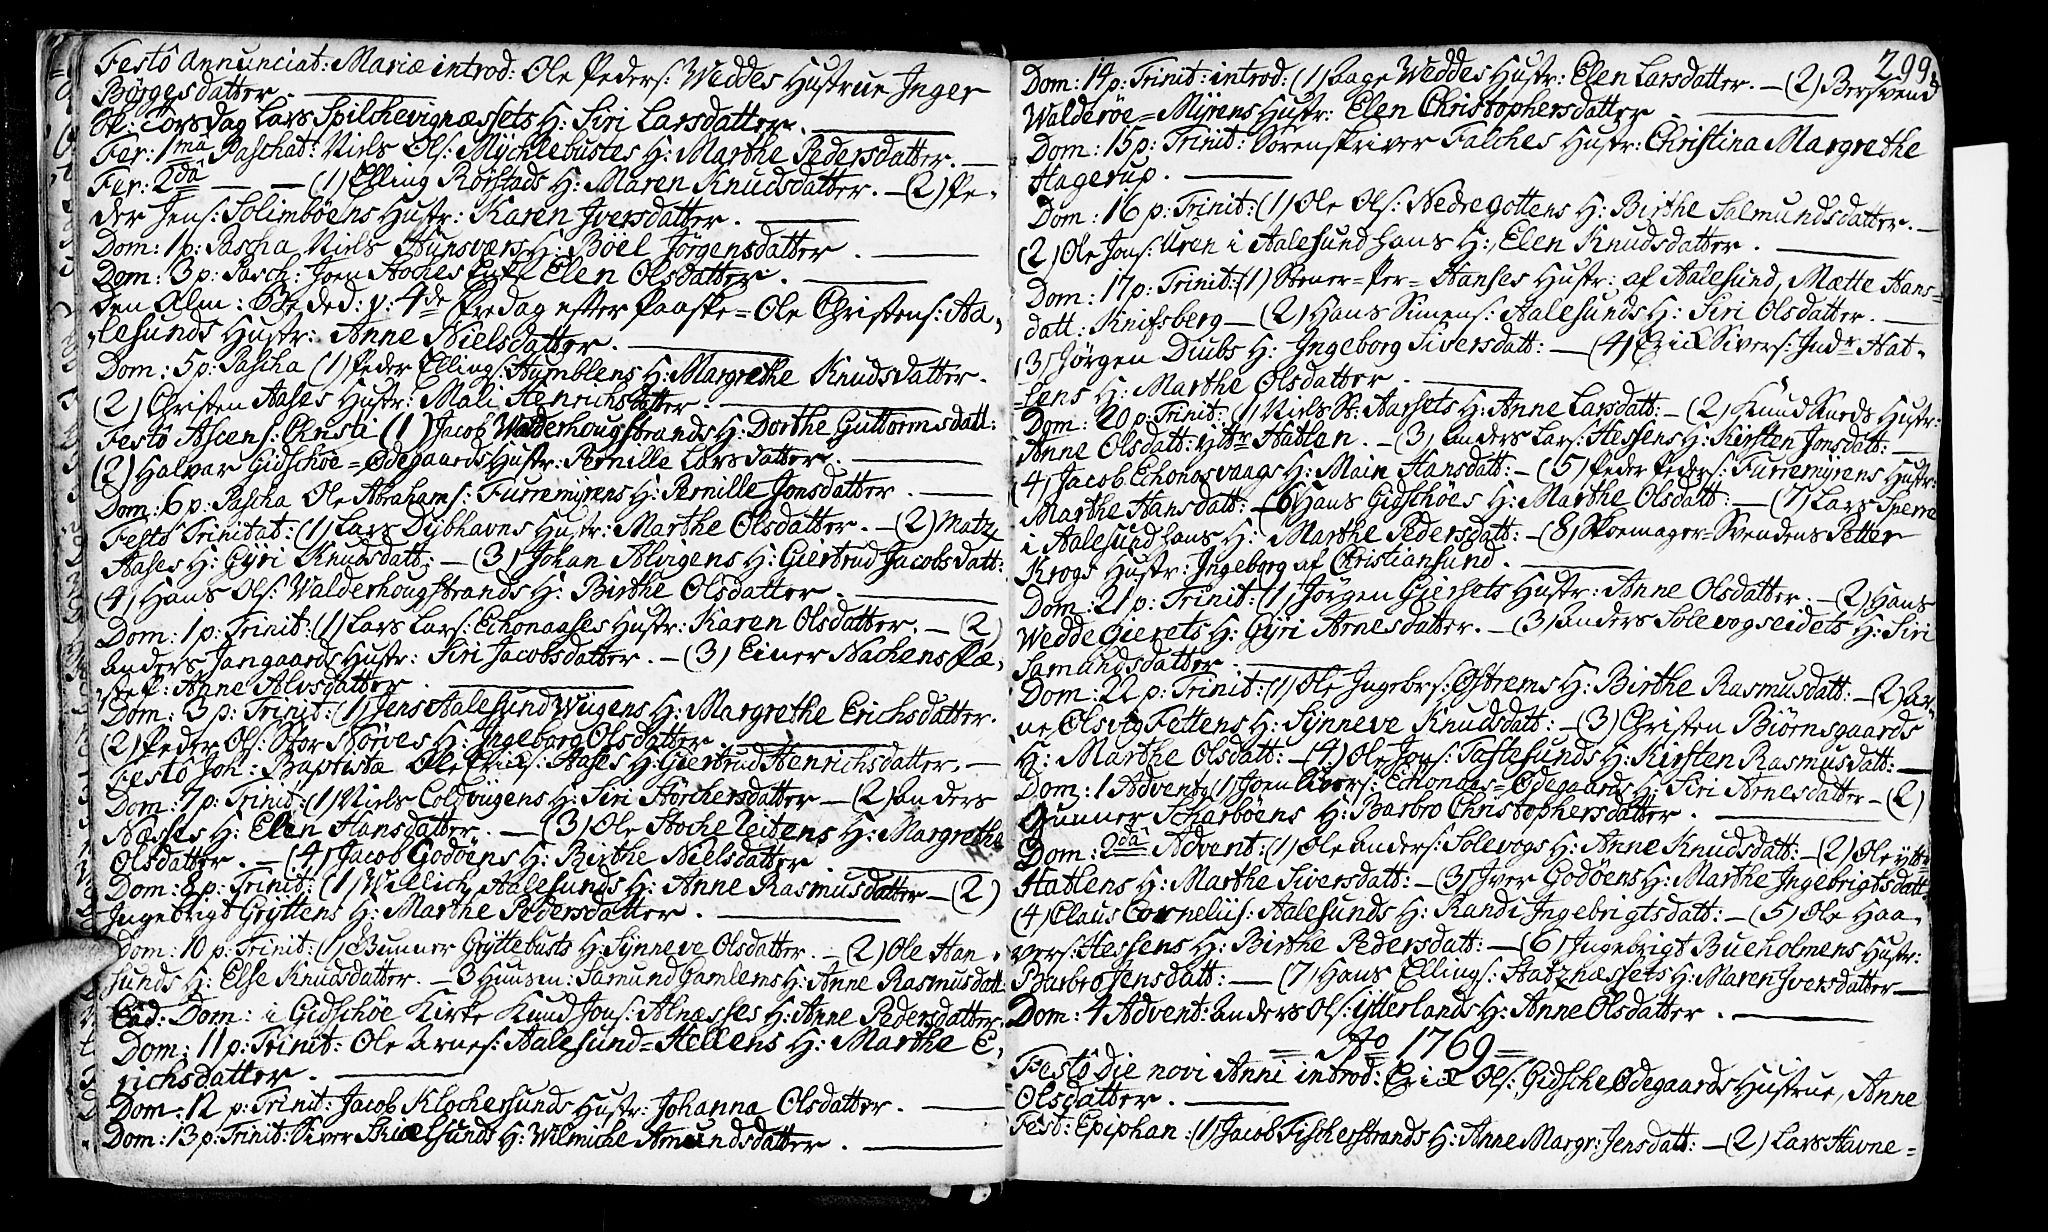 Festô Annunciat: Mariæ introd: Ole Peders: Weddes Hustrue Inger
Börgesdatter.
Sk: Torsdag Lars Spilchevignæssets H: Siri Larsdatter.
Fer: 1mâ Paschat: Niels Ols: Mÿchlebustes H: Marthe Pedersdatter. —
Fer: 2dâ — — (1) Elling Rörstads H: Maren Knudsdatter. — (2) Pe-
der Jens: Solimböens Hustr: Karen Iversdatter.
Dom: 1 p: Pascha Niels Hunsværs H: Böel Jörgensdatter
Dom: 3 p: Pasch: Joen Hoches Elen Olsdatter.
Den Alm: Bededag: p: 4de Fredag efter Paaske = Ole Christens: Aa-
lesunds Hustr: Anne Nielsdatter.
Dom: 5 p: Pascha (1) Peder Ellings: Humblens H: Margrethe Knudsdatter.
(2) Christen Aases Hustr: Mali Henrichsdatter.
Festô Ascens: Christi (1) Jacob Walderhougstrands H: Dorthe Guttormsdatt:
(2) Halvar Gidschöe = Ödegaards Hustr: Pernille Larsdatter.
Dom: 6 p: Pascha Ole Abrahams: Furremÿrens H: Pernille Jonsdatter.
Festô Trinitat: (1) Lars Dÿbhavns Hustr: Marthe Olsdatter. — (2) Matz
Aases H: Gÿri Knudsdatt: — (3) Johan Alvgens H: Giertrud Jacobsdatt:
(4) Hans Ols: Walderhougstrands H: Birthe Olsdatter.
Dom: 1 p: Trinit: (1) Lars Lars: Echonaases Hustr: Karen Olsdatter. — (2)
Anders Jangaards Hustr: Siri Jacobsdatter. — (3) Einer Nachens Fæ-
Anne Alvsdatter.
Dom: 3 p: Trinit: (1) Jens Aalesund Wiigens H: Margrethe Erichsdatter.
(2) Peder Ols: Stor Nörves H: Ingeborg Olsdatter.
Festô Joh: Baptista Ole Erics: Aases H: Giertrud Henrichsdatter. —
Dom: 7 p: Trinit: (1) Niels Coldviigens H: Siri Störchersdatter — (2) Anders
Næsses H: Elen Hansdatter. — (3) Ole Hocheleitens H: Margrethe
Olsdatter. — (4) Jacob Godöens H: Birthe Nielsdatter
Dom: 8 p: Trinit: (1) Willich Aalesunds H: Anne Rasmusdatter — (2)
Ingebrigt Grÿttens H: Marthe Pedersdatter.
Dom: 10 p: Trinit: (1) Gunner Grÿttebusts H: Sÿnneve Olsdatter. — (2) Ole Han-
sunds H: Else Knudsdatter. — 3 Huusm: Samund Gamlems H: Anne Rasmusdatt
Ead: Dom: i Gidschöe Kirke Knud Jons: Alnæsses H: Anne Pedersdatter.
Dom: 11 p: Trinit: Ole Arnes: Aalesund = Hellens H: Marthe E-
richsdatter.
Dom: 12 p: Trinit: Jacob Klochersunds Hustr: Johanna Olsdatter.
Dom: 13 p: Trinit: Siver Skuelsunds H: Wilmiche Amundsdatter.
299.
Dom: 14 p: Trinit: introd: (1) Aage Weddes Hustr: Elen Larsdatter. — (2) Bersvend
Walderöe = Mÿrens Hustr: Elen Christophersdatter
Dom: 15 p: Trinit: Sorenskriver Falches Hustr: Christina Margrethe
Hagerup.
Dom: 16 p: Trinit: (1) Ole Ols: Nedregottens H: Birthe Salmundsdatter. —
(2) Ole Jons: Uren i Aalesund hans H: Elen Knudsdatter.
Dom: 17 p: Trinit: (1) Stener = Per = Hanses Hustr: af Aalesund, Mætte Hans=
datt: Knifsberg — (2) Hans Simens: Aalesunds H: Siri Olsdatter. —
(3) Jörgen Diubs H: Ingeborg Siversdatt: — (4) Erick Sivers: Indr Hat-
lens H: Marthe Olsdatter.
Dom: 20 p: Trinit: (1) Niels St: Aarsets H: Anne Larsdatt: — (2) Knud Hustr:
Anne Olsdatt: Yttr Hatlen. — (3) Anders Lars: Hessens H: Kirsten Jonsdatt: —
(4) Jacob Echonosvaags H: Main Hansdatt: — (5) Peder Peders: Furremÿrens Hustr:
Marthe Hansdatt: — (6) Hans Gidschöes H: Marthe Olsdatt: — (7) Lars Sperre
i Aalesund hans H: Marthe Pedersdatt: — (8) Skoemager = Svendens Petter
Krogs Hustr: Ingeborg af Christiansund.
Dom: 21 p: Trinit: (1) Jörgen Giersets Hustr: Anne Olsdatter. — (2) Hans
Wedde Gierets H: Gÿri Arnesdatter. — (3) Anders Solevogseidets H: Siri
Samundsdatter.
Dom: 22 p: Trinit: (1) Ole Ingebr: Östrems H: Birthe Rasmusdatt: — (2) Ar-
ne Olsvig Fettens H: Sÿnneve Knudsdatt: — (3) Christen Biörnsgaards
H: Marthe Olsdatt: — (4) Ole Jons: Tastesunds H: Kirsten Rasmusdatt: —
Dom: 1 Advent: (1) Joen Echonaas = Ödegaards H: Siri Arnesdatter — (2)
Gunner Scharböens H: Barbro Christophersdatter.
Dom: 2dâ Advent: (1) Ole Anders: Solevogs H: Anne Knudsdatt: — (2) Ole ytt
Hatlens H: Marthe Siversdatt: — (3) Iver Godöens H: Marthe Ingebrigtsdatt:
(4) Claus Corneliis: Aalesunds H: Randi Ingebrigtsdatt: — (5) Ole Haa-
vers: Hessens H: Birthe Pedersdatt: — (6) Ingebrigt Bueholmens Hustr:
Barbro Jensdatt: — (7) Hans Ellings: Statznæssets H: Maren Iversdatter —
Dom: 4 Advent: Anders Ols: Ytterlands H: Anne Olsdatter.
= Ao 1769 =
Festô Die novi Anni introd: Erick Ols: Gidsche Ödegaards Hustrue, Anne
Olsdatter.
Fest: Epiphan: (1) Jacob Fischerstrands H: Anne Margr: Jensdatt: — (2) Lars Havne=